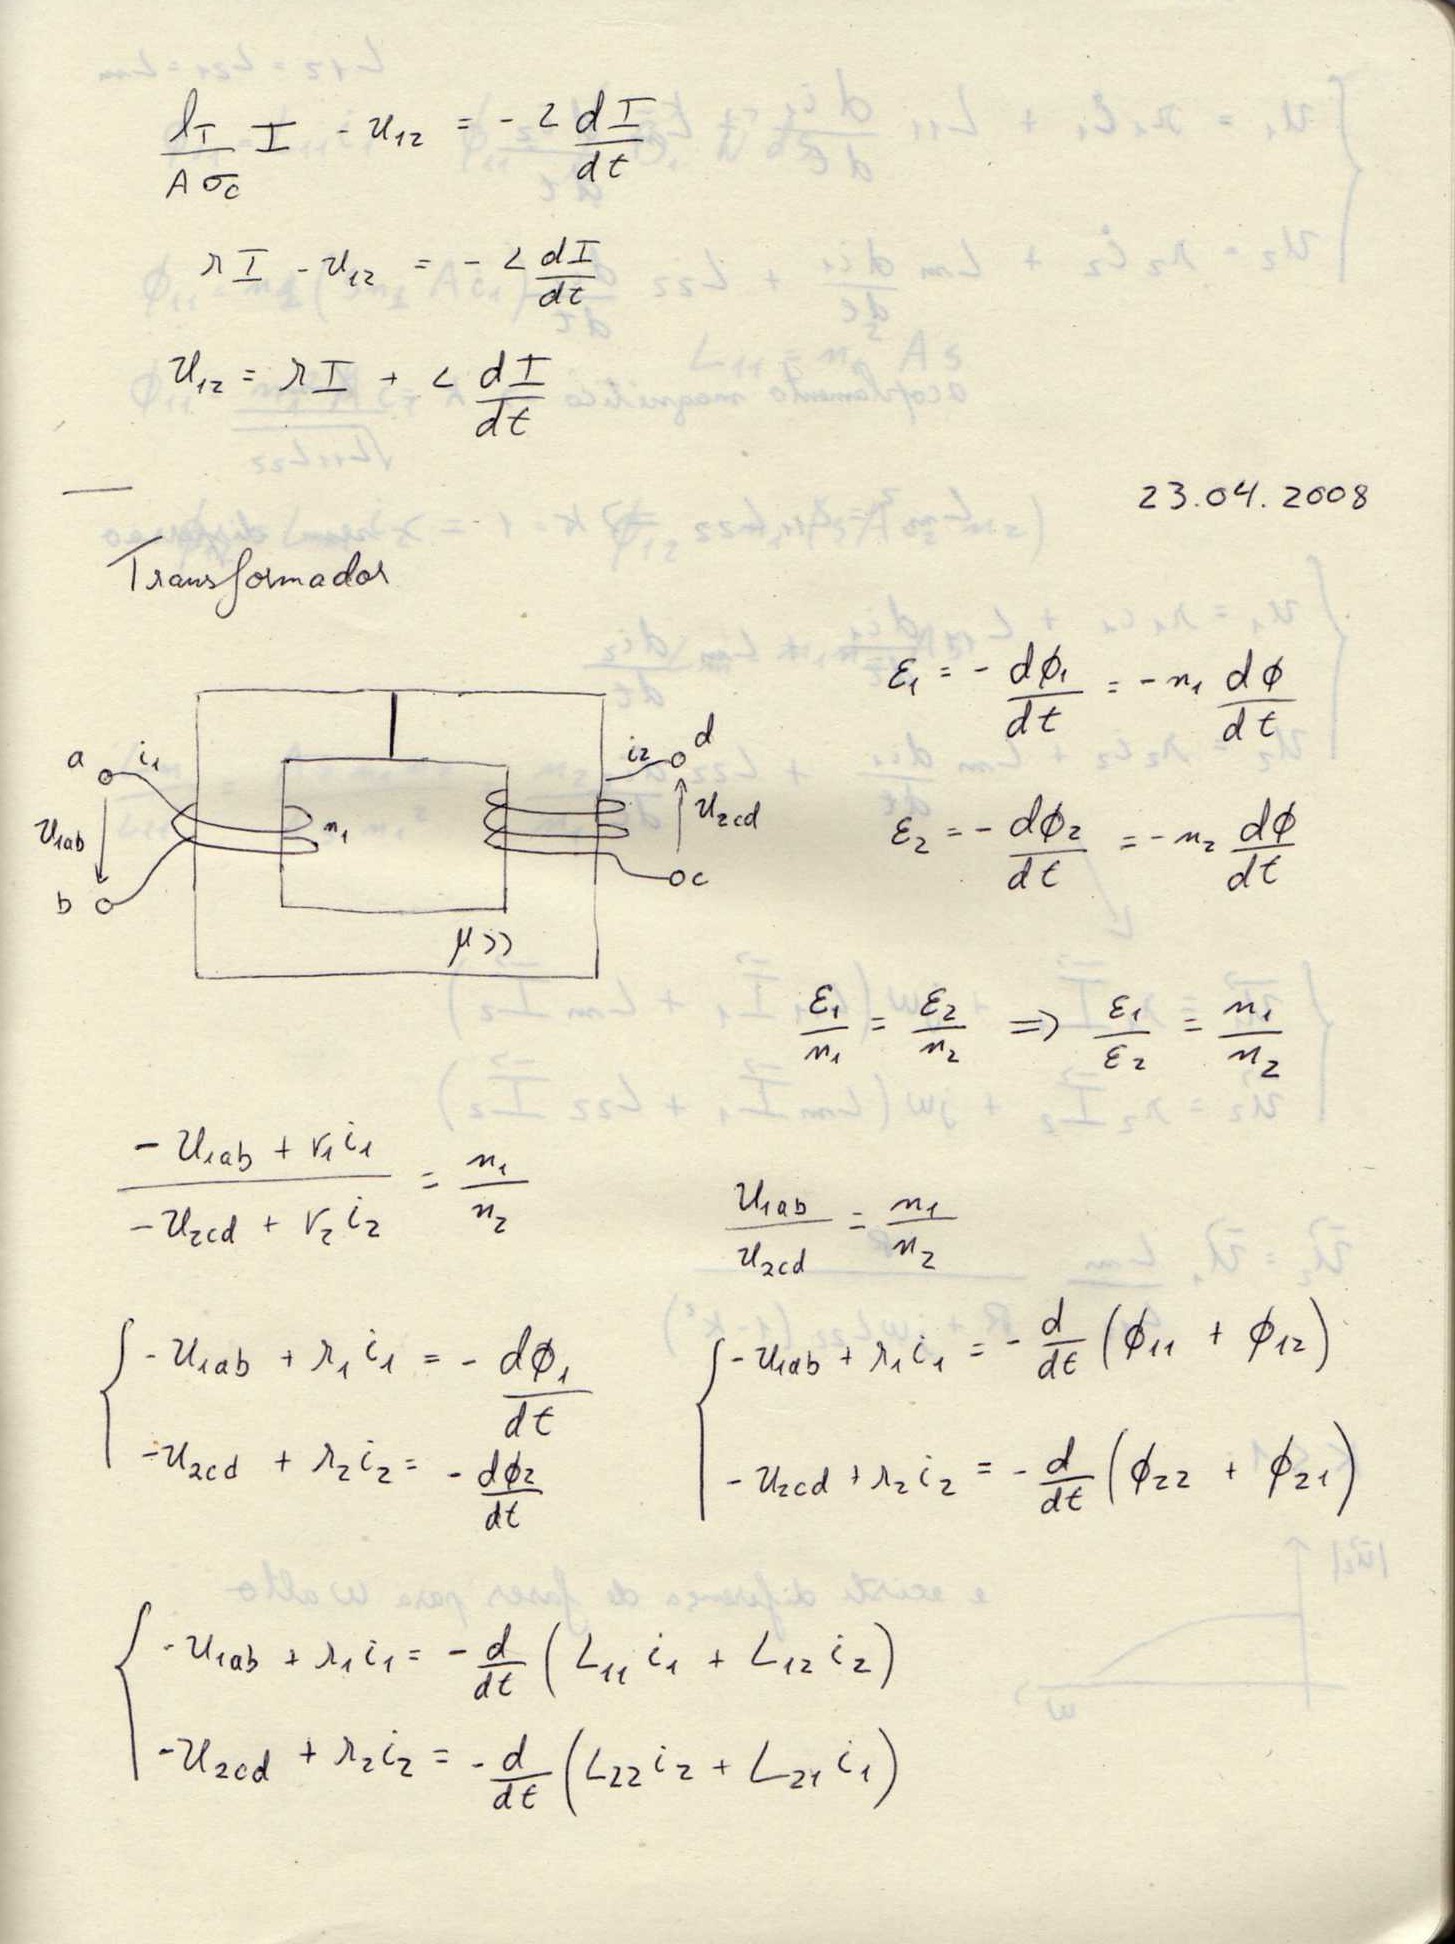 l_I/(Aσ_c) I - u₁₂ = - L dI/dt
rI - u₁₂ = - L dI/dt
u₁₂ = rI + L dI/dt
23.04.2008
Transformador
ε₁ = - dϕ₁/dt = - n₁ dϕ/dt
a i₁ i₂ d
u₁ab n₁ u₂cd
ε₂ = - dϕ₂/dt = - n₂ dϕ/dt
b c
μ >>
ε₁/n₁ = ε₂/n₂ => ε₁/ε₂ = n₁/n₂
(- u₁ab + r₁i₁)/(- u₂cd + r₂i₂) = n₁/n₂
u₁ab/u₂cd = n₁/n₂
{ - u₁ab + r₁i₁ = - dϕ₁/dt
- u₂cd + r₂i₂ = - dϕ₂/dt
{ - u₁ab + r₁i₁ = - d/dt (ϕ₁₁ + ϕ₁₂)
- u₂cd + r₂i₂ = - d/dt (ϕ₂₂ + ϕ₂₁)
{ - u₁ab + r₁i₁ = - d/dt (L₁₁i₁ + L₁₂i₂)
- u₂cd + r₂i₂ = - d/dt (L₂₂i₂ + L₂₁i₁)